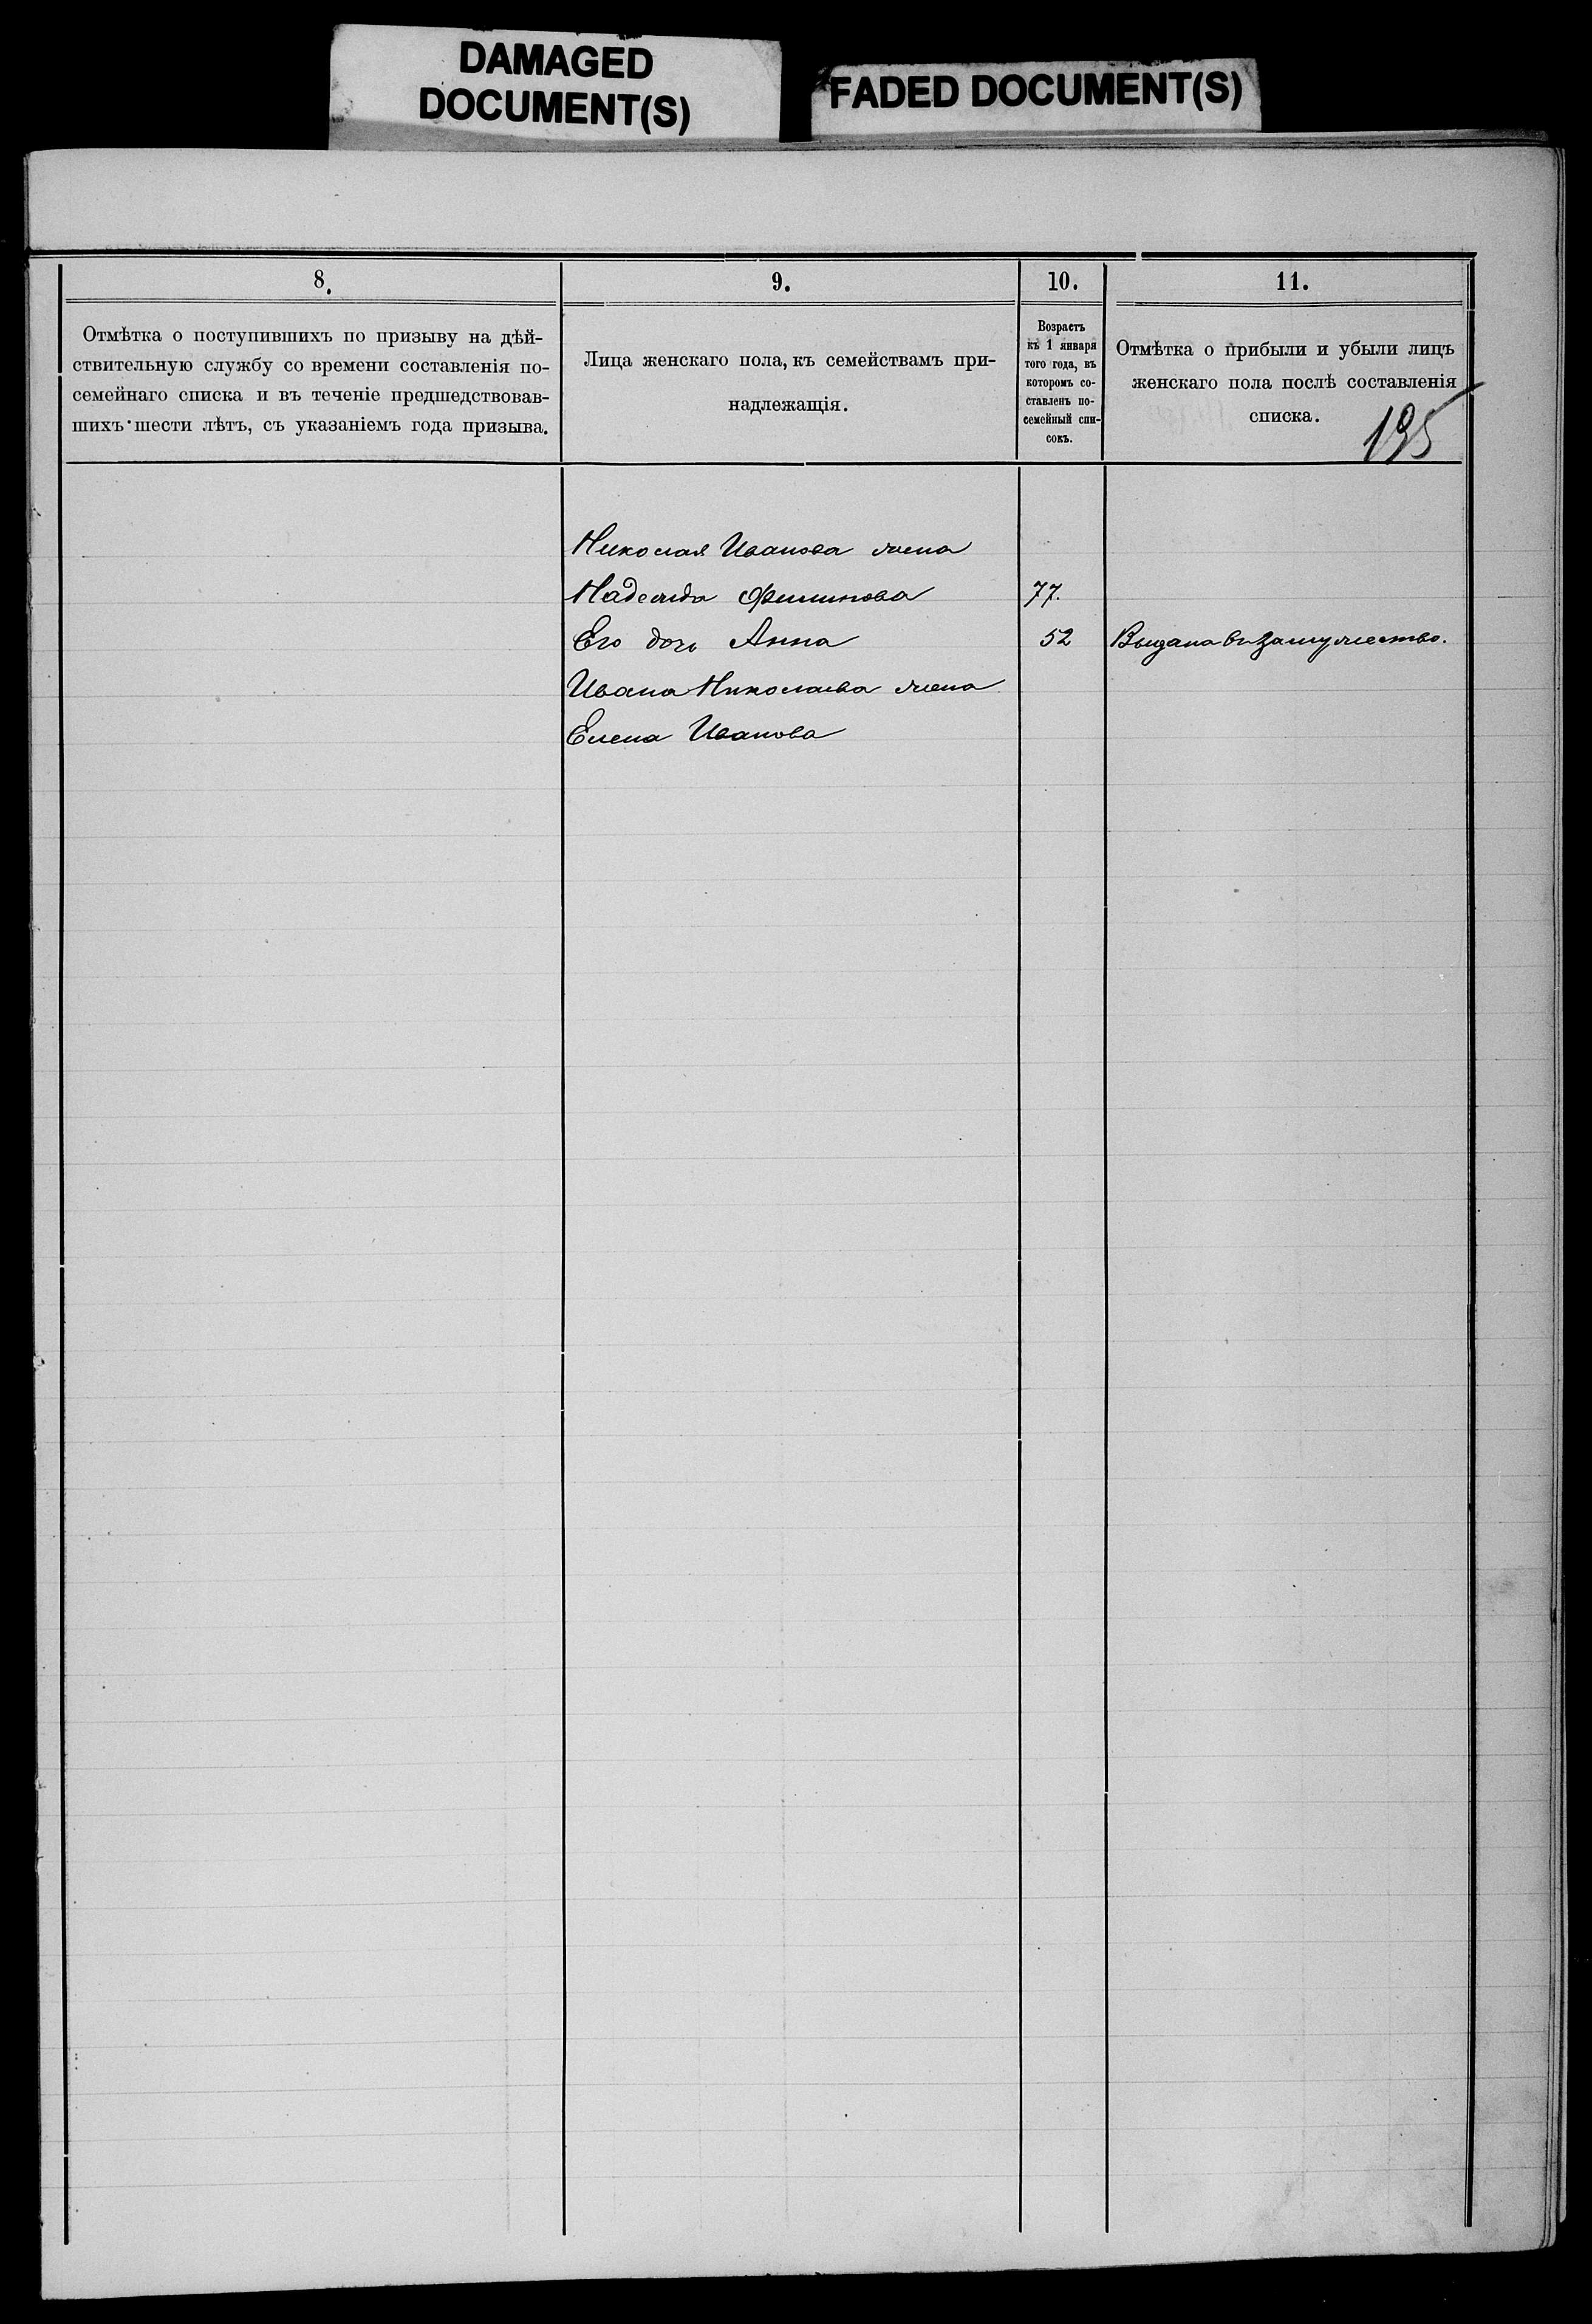 DAMAGED
DOCUMENT(S)
FADED DOCUMENT(S)
8.
9.
10.
11.
Отмѣтка о поступившихъ по призыву на дѣй-
ствительную службу со времени составленія по-
семейнаго списка и въ теченіе предшедствовав-
шихъ шести лѣтъ, съ указаніемъ года призыва.
Лица женскаго пола, къ семействамъ при-
надлежащія.
Возрастъ
къ 1 января
того года, въ
которомъ со-
ставленъ по-
семейный спи-
сокъ.
Отмѣтка о прибыли и убыли лицъ
женскаго пола послѣ составленія
списка.
195
Николая Иванова жена
Надежда Филипова 77.
Его дочь Анна 52 Выдана въ замужество.
Ивана Николаева жена
Елена Иванова